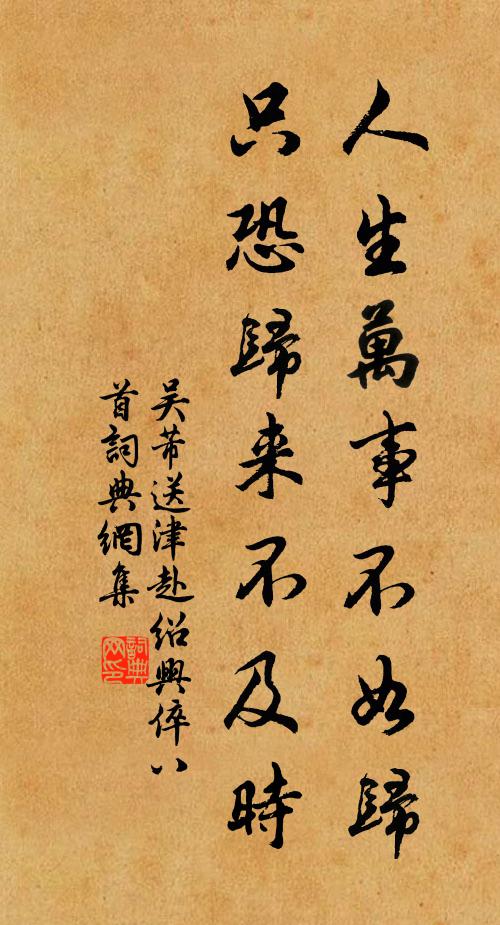 人生萬事不如歸
只恐歸来不及時
吴芾送津赴绍興倅八
首詞典網集
詞典
网印